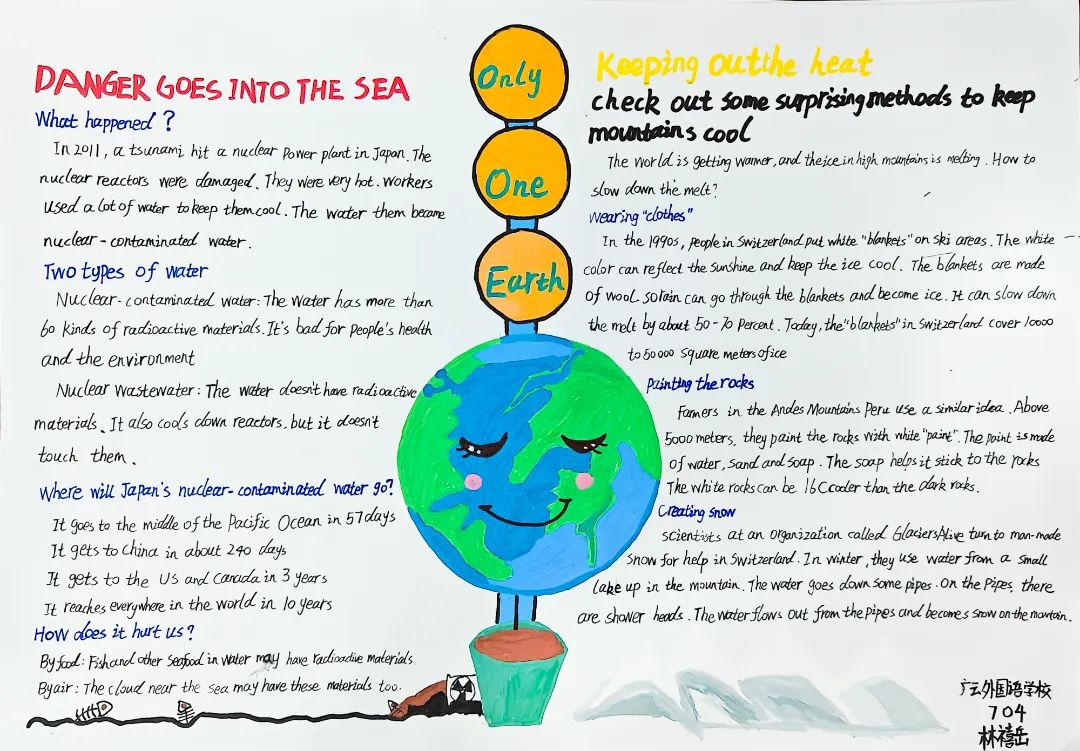 DANGER GOES INTO THE SEA
What happened?
In 2011, a tsunami hit a nuclear power plant in Japan. The
nuclear reactors were damaged. They were very hot. Workers
used a lot of water to keep them cool. The water them became
nuclear-contaminated water.
Two types of water
Nuclear-contaminated water: The water has more than
60 kinds of radioactive materials. It's bad for people's health
and the environment
Nuclear wastewater: The water doesn't have radioactive
materials. It also cools down reactors. but it doesn't
touch them.
Where will Japan's nuclear-contaminated water go?
It goes to the middle of the Pacific Ocean in 57 days
It gets to China in about 240 days
It gets to the US and Canada in 3 years
It reaches everywhere in the world in 10 years
How does it hurt us?
By food: Fish and other seafood in water may have radioadive materials
By air: The cloud near the sea may have these materials too.
Only
One
Earth
Keeping out the heat
check out some surprising methods to keep
mountains cool
The world is getting warmer, and the ice in high mountains is melting. How to
slow down the melt?
Wearing "clothes"
In the 1990s, people in Switzerland put white "blankets" on ski areas. The white
color can reflect the sunshine and keep the ice cool. The blankets are made
of wool. so rain can go through the blankets and become ice. It can slow down
the melt by about 50-70 percent. Today, the "blankets" in Switzerland cover 10000
to 50000 square meters of ice
Painting the rocks
Farmers in the Andes Mountains Peru use a similar idea. Above
5000 meters, they paint the rocks with white "paint". The paint is made
of water, sand and soap. The soap helps it stick to the rocks
The white rocks can be 16C cooler than the dark rocks.
Creating snow
scientists at an organization called GlaciersAlive turn to man-made
snow for help in Switzerland. In winter, they use water from a small
lake up in the mountain. The water goes down some pipes. On the pipes, there
are shower heads. The water flows out from the pipes and becomes snow on the mountain.
广云外国语学校
704
林禧岳